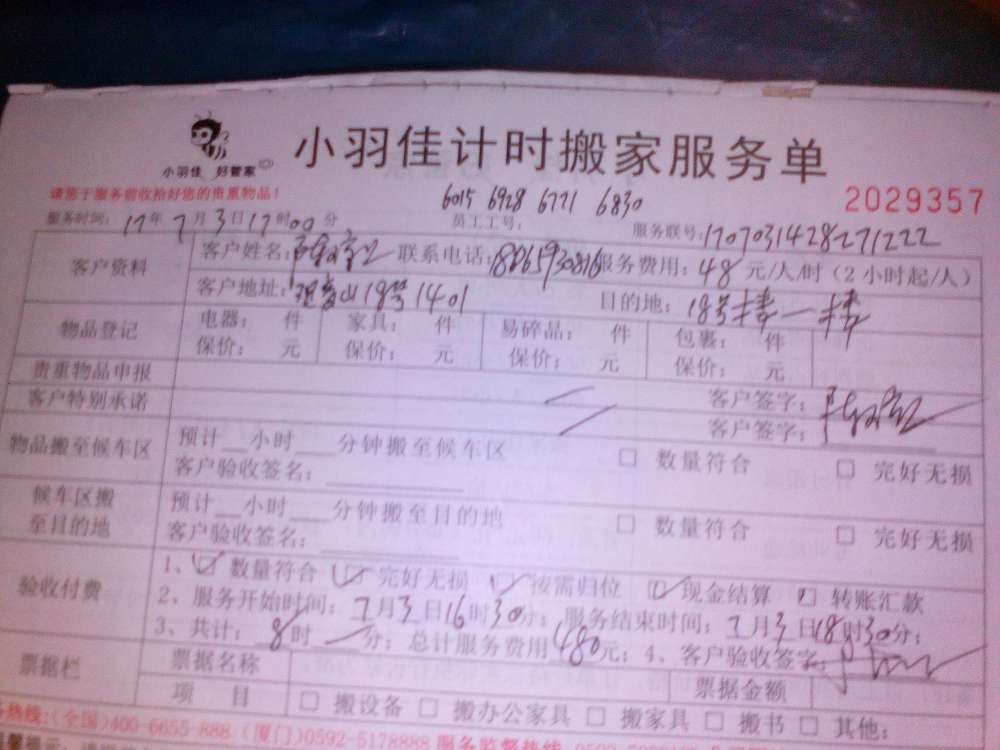 小羽佳 好管家
小羽佳计时搬家服务单
请您于服务前收拾好您的贵重物品!
6015 6928 6771 6830
2029357
服务时间: 17年7月3日17时00分 员工工号: 服务联号: 1707031428271222
客户资料 客户姓名: 联系电话: 服务费用: 48元/人/时 (2小时起/人)
客户地址: 观音山18号1401 目的地: 18号楼一楼
物品登记 电器: 件 家具: 件 易碎品: 件 包裹: 件
保价: 元 保价: 元 保价: 元 保价: 元
贵重物品申报 客户签字:
客户特别承诺 客户签字:
物品搬至候车区 预计__小时___分钟搬至候车区 □ 数量符合 □ 完好无损
客户验收签名:
候车区搬至目的地 预计__小时___分钟搬至目的地 □ 数量符合 □ 完好无损
客户验收签名:
验收付费 1、☑数量符合 ☑完好无损 ☑按需归位 ☑现金结算 □转账汇款
2、服务开始时间: 7月3日16时30分; 服务结束时间: 7月3日18时30分;
3、共计: 8时 分; 总计服务费用480元; 4、客户验收签字:
票据栏 票据名称 票据金额
项 目 □ 搬设备 □ 搬办公家具 □ 搬家具 □ 搬书 □ 其他:
务热线:(全国)400-6055-888 (厦门)0592-5178888 服务监督热线